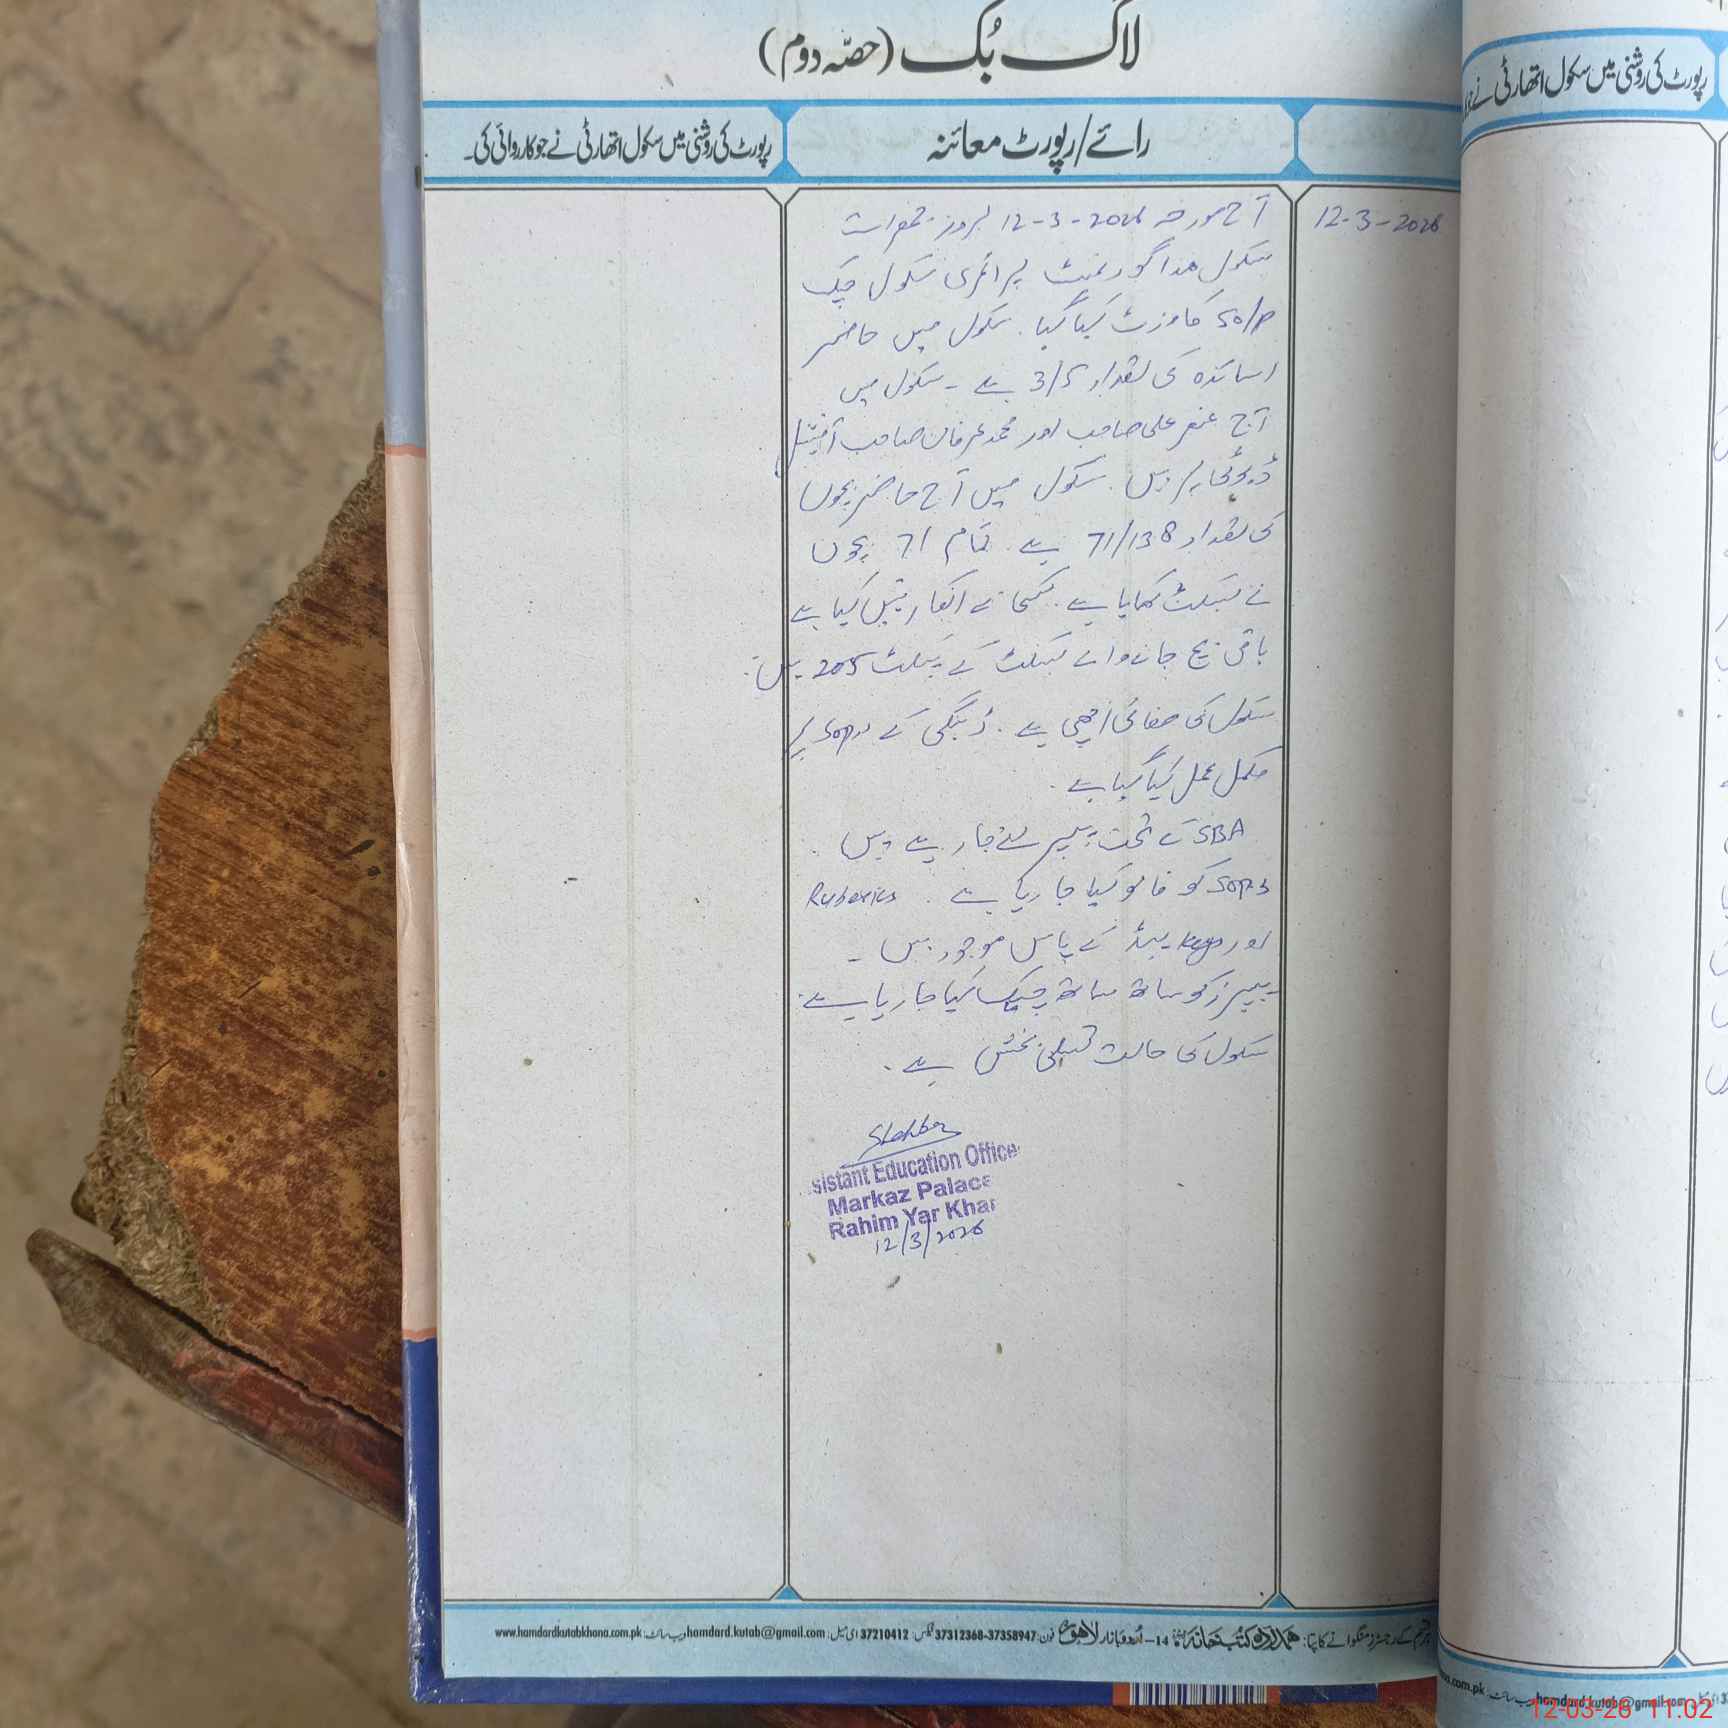 لاگ بُک (حصّہ دوم)
رائے/رپورٹ معائنہ
رپورٹ کی روشنی میں سکول اتھارٹی نے جو کارروائی کی۔
12-3-2026
آج مورخہ 2026-3-12 بروز جمعرات
سکول ھذا گورنمنٹ پرائمری سکول چک
50/P کا وزٹ کیا گیا۔ سکول میں حاضر
اساتذہ کی تعداد 3/5 ہے۔ سکول میں
آج غنصر علی صاحب اور محمد عرفان صاحب آفیشل
ڈیوٹی پر ہیں۔ سکول میں آج حاضر بچوں
کی تعداد 71/138 ہے۔ تمام 71 بچوں
نے ٹیبلٹ کھایا ہے۔ کسی نے انکار نہیں کیا ہے
باقی بچ جانے والے ٹیبلٹ کے پیکٹ 205 ہیں۔
سکول کی صفائی اچھی ہے۔ ڈینگی کے SOPs پر
مکمل عمل کیا گیا ہے۔
SBA کے تحت پیپر لئے جا رہے ہیں۔
SOPs کو فالو کیا جا رہا ہے۔ Ruberics
اور keys ہیڈ کے پاس موجود ہیں۔
پیپرز کو ساتھ ساتھ چیک کیا جا رہا ہے۔
سکول کی حالت تسلی بخش ہے۔
sistant Education Office
Markaz Palace
Rahim Yar Khan
12/3/2026
ہمدرد کتب خانہ 14-اُردو بازار لاہور فون: 37358947-37312368 فیکس: 37210412 ای میل: hamdard.kutab@gmail.com ویب سائٹ: www.hamdardkutabkhana.com.pk
رپورٹ کی روشنی میں سکول اتھارٹی نے
hamdard.kutab@gmail.com
12-03-26 11:02